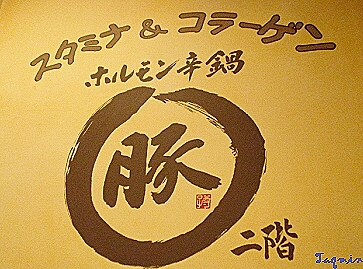 スタミナ & コラーゲン
ホルモン辛鍋
豚
二階
Taqmin